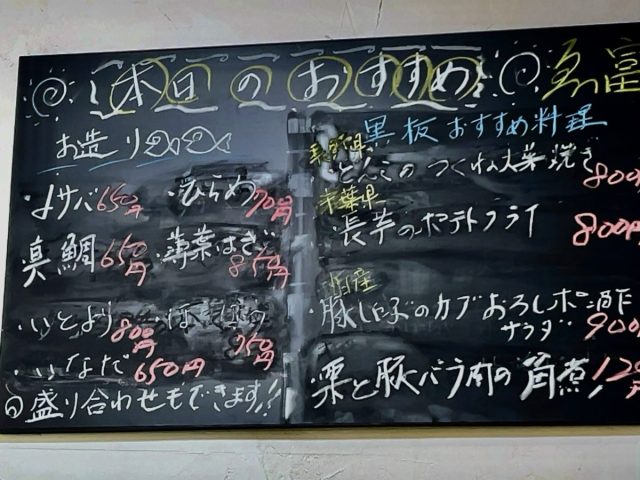 本日のおすすめ
お造り
・〆サバ 650円 ・ひらめ 700円
真鯛 650円 ・薄葉はぎ 850円
・いとより 800円 950円
・いなだ 650円
盛り合わせもできます!!
黒板おすすめ料理
つくね大葉焼き 800
千葉県
長芋のポテトフライ 800円
国産
・豚しゃぶのカブおろしポン酢
サラダ 900
・栗と豚バラ肉の角煮